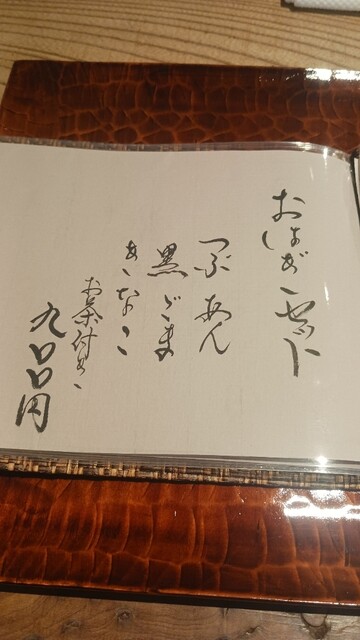 おはぎセット
つぶあん
黒ごま
きなこ
お茶付き
九〇〇円